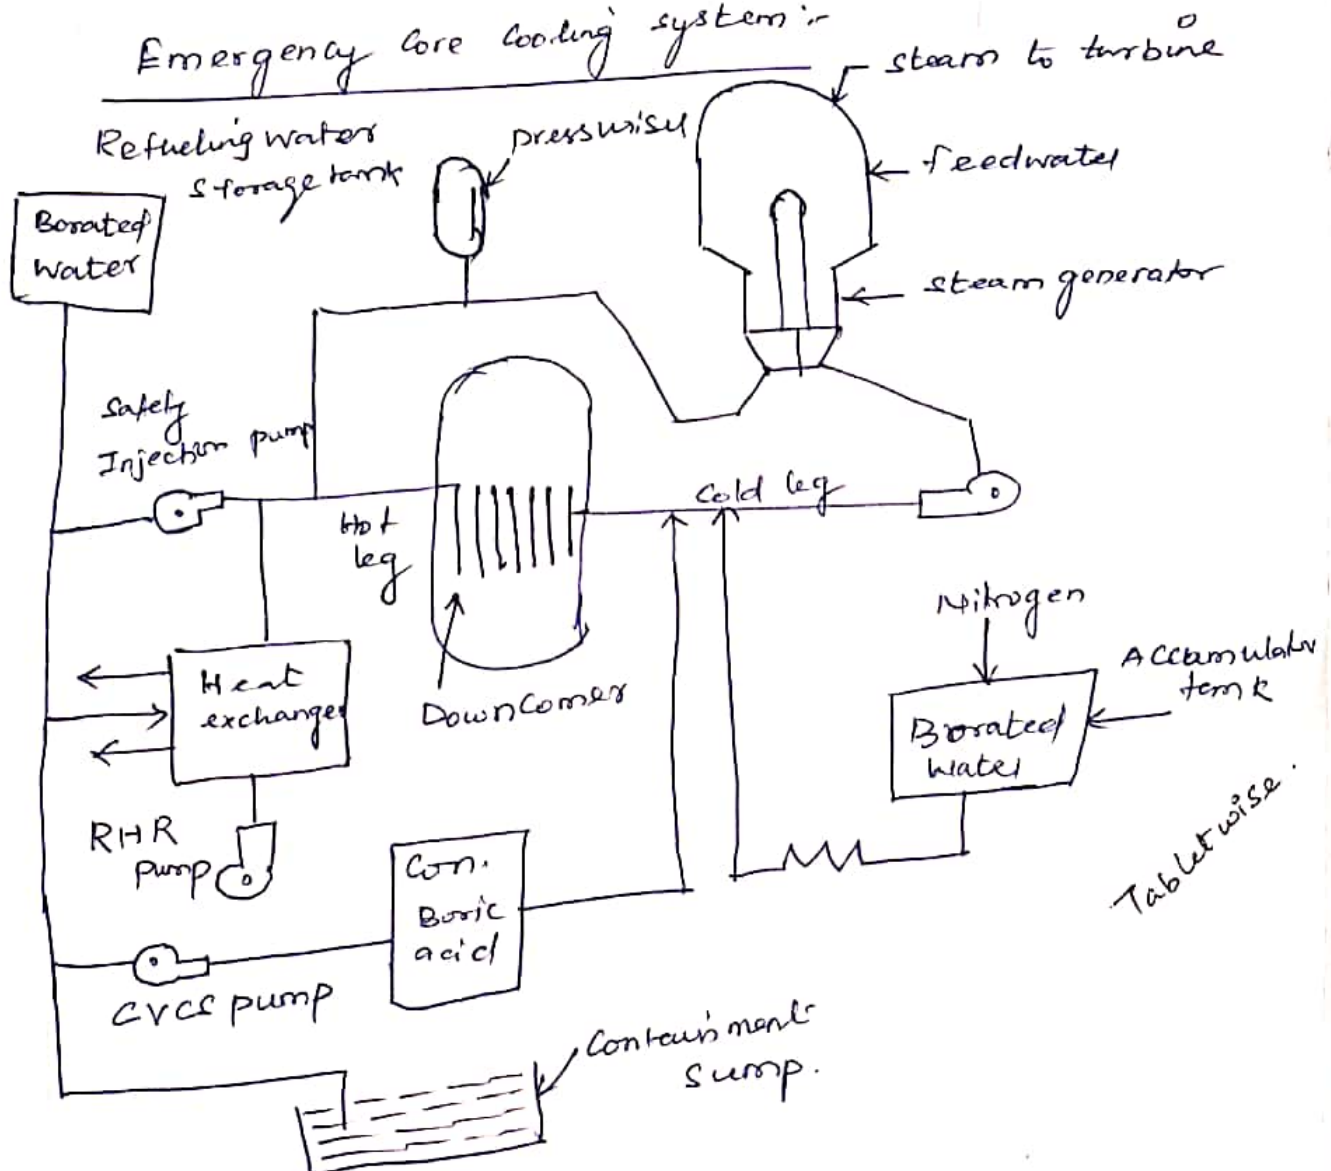 Emergency Core Cooling system :-
steam to turbine
Refueling water
storage tank
Pressuriser
feedwater
Borated
Water
steam generator
Safety
Injection pump
Cold leg
Hot
leg
Nitrogen
Accumulator
tank
Heat
exchanger
Downcomer
Borated
water
RHR
pump
Con.
Boric
acid
Tabletwise.
CVCS pump
Containment
Sump.